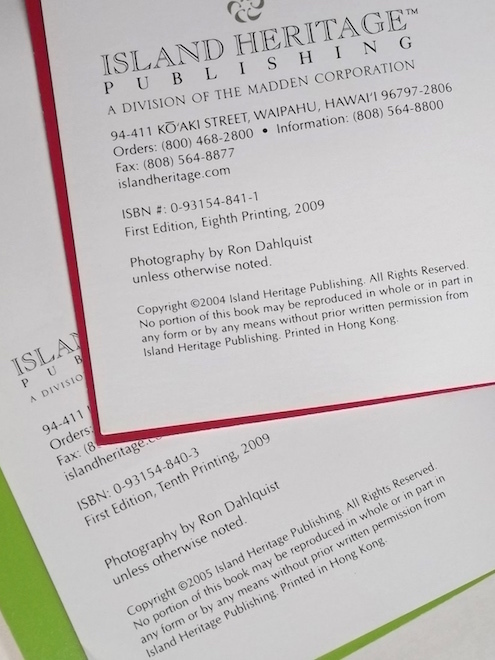 ISLAND HERITAGE™
PUBLISHING
A DIVISION OF THE MADDEN CORPORATION
94-411 KŌ‘AKI STREET, WAIPAHU, HAWAI‘I 96797-2806
Orders: (800) 468-2800 • Information: (808) 564-8800
Fax: (808) 564-8877
islandheritage.com
ISBN #: 0-93154-841-1
First Edition, Eighth Printing, 2009
Photography by Ron Dahlquist
unless otherwise noted.
Copyright ©2004 Island Heritage Publishing. All Rights Reserved.
No portion of this book may be reproduced in whole or in part in
any form or by any means without prior written permission from
Island Heritage Publishing. Printed in Hong Kong.
94-411
Orders:
Fax: (8
islandheritage.co
ISBN: 0-93154-840-3
First Edition, Tenth Printing, 2009
Photography by Ron Dahlquist
unless otherwise noted.
Copyright ©2005 Island Heritage Publishing. All Rights Reserved.
No portion of this book may be reproduced in whole or in part in
any form or by any means without prior written permission from
Island Heritage Publishing. Printed in Hong Kong.